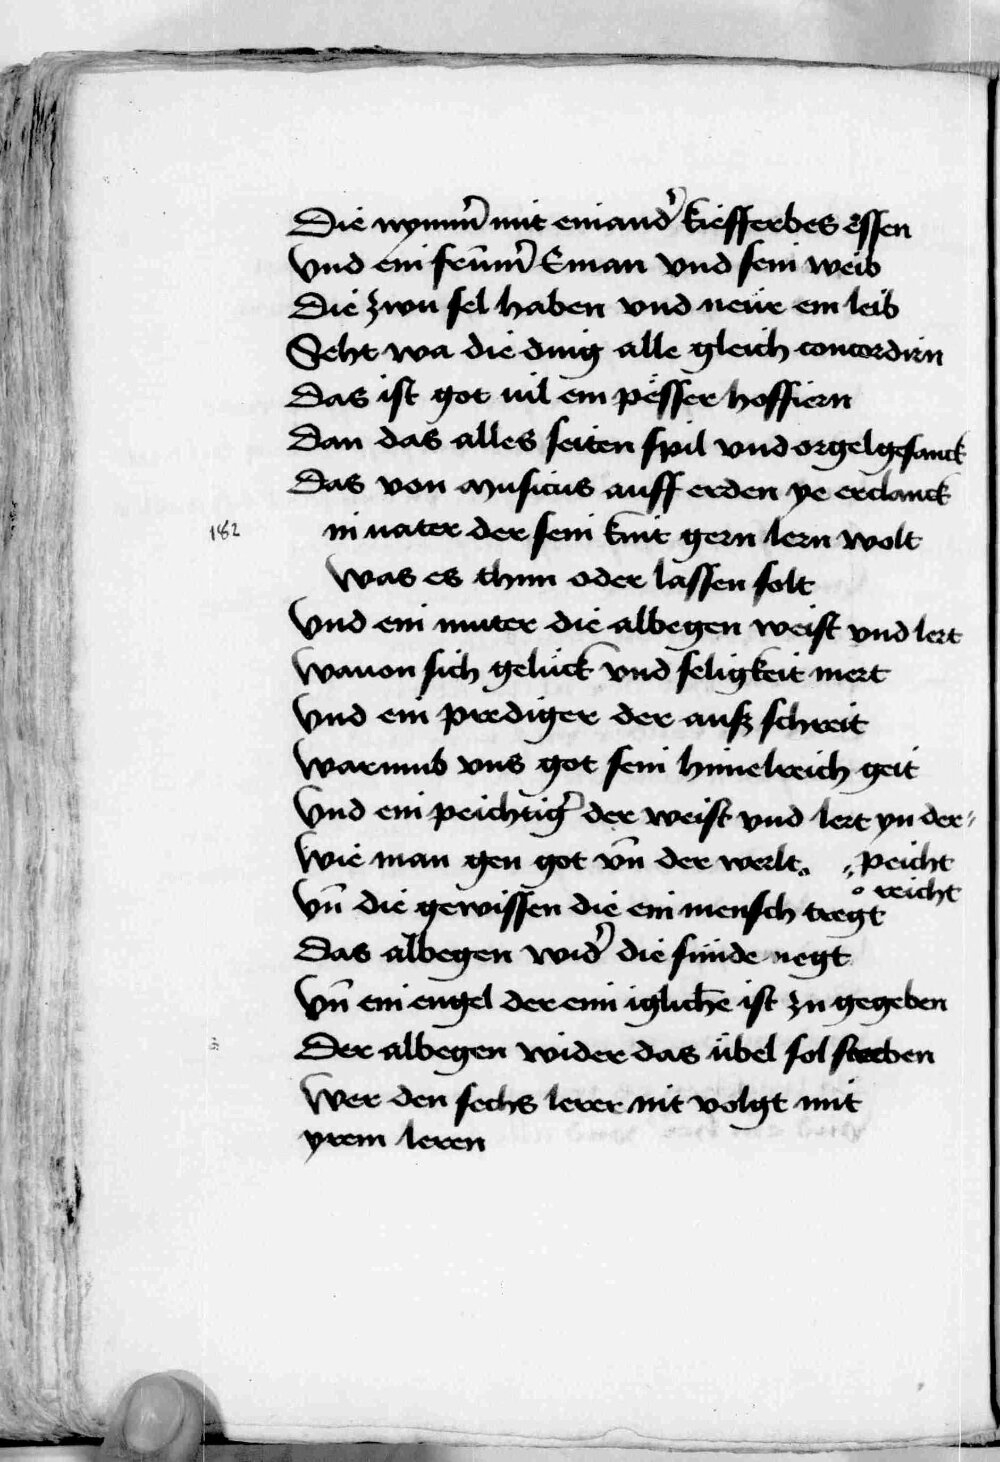 Die nymm̄ mit einand᷑ kiefferbes essen
Vnd ein frūm̄ Eman vnd sein weib
Die zwu sel haben vnd neür ein leib
Seht wa die ding alle gleich concordirn
Das ist got vil ein pësser hoffiern
Dan das alles seiten spil vnd orgelgesanck
Das von musicus auff erden ye erclanck
182
in vater der sein kint gern lern wolt
Was es thun oder lassen solt
Vnd ein muter die albegen weist vnd lert
Wauon sich gelück vnd seligkeit mert
Vnd ein prediger der ausz schreit
Warumb vns got sein himelreich geit
Vnd ein peichtig᷑ der weist vnd lert yn der
Wie man gen got vn̄ der werlt peicht
reicht
Vn̄ die gewissen die ein mensch tregt
Das albegen wid᷑ die sünde negt
Vn̄ ein engel der eim iglichē ist zu gegeben
Der albegen wider das übel sol streben
Wer den sechs lerer nit volgt mit
yrem leren